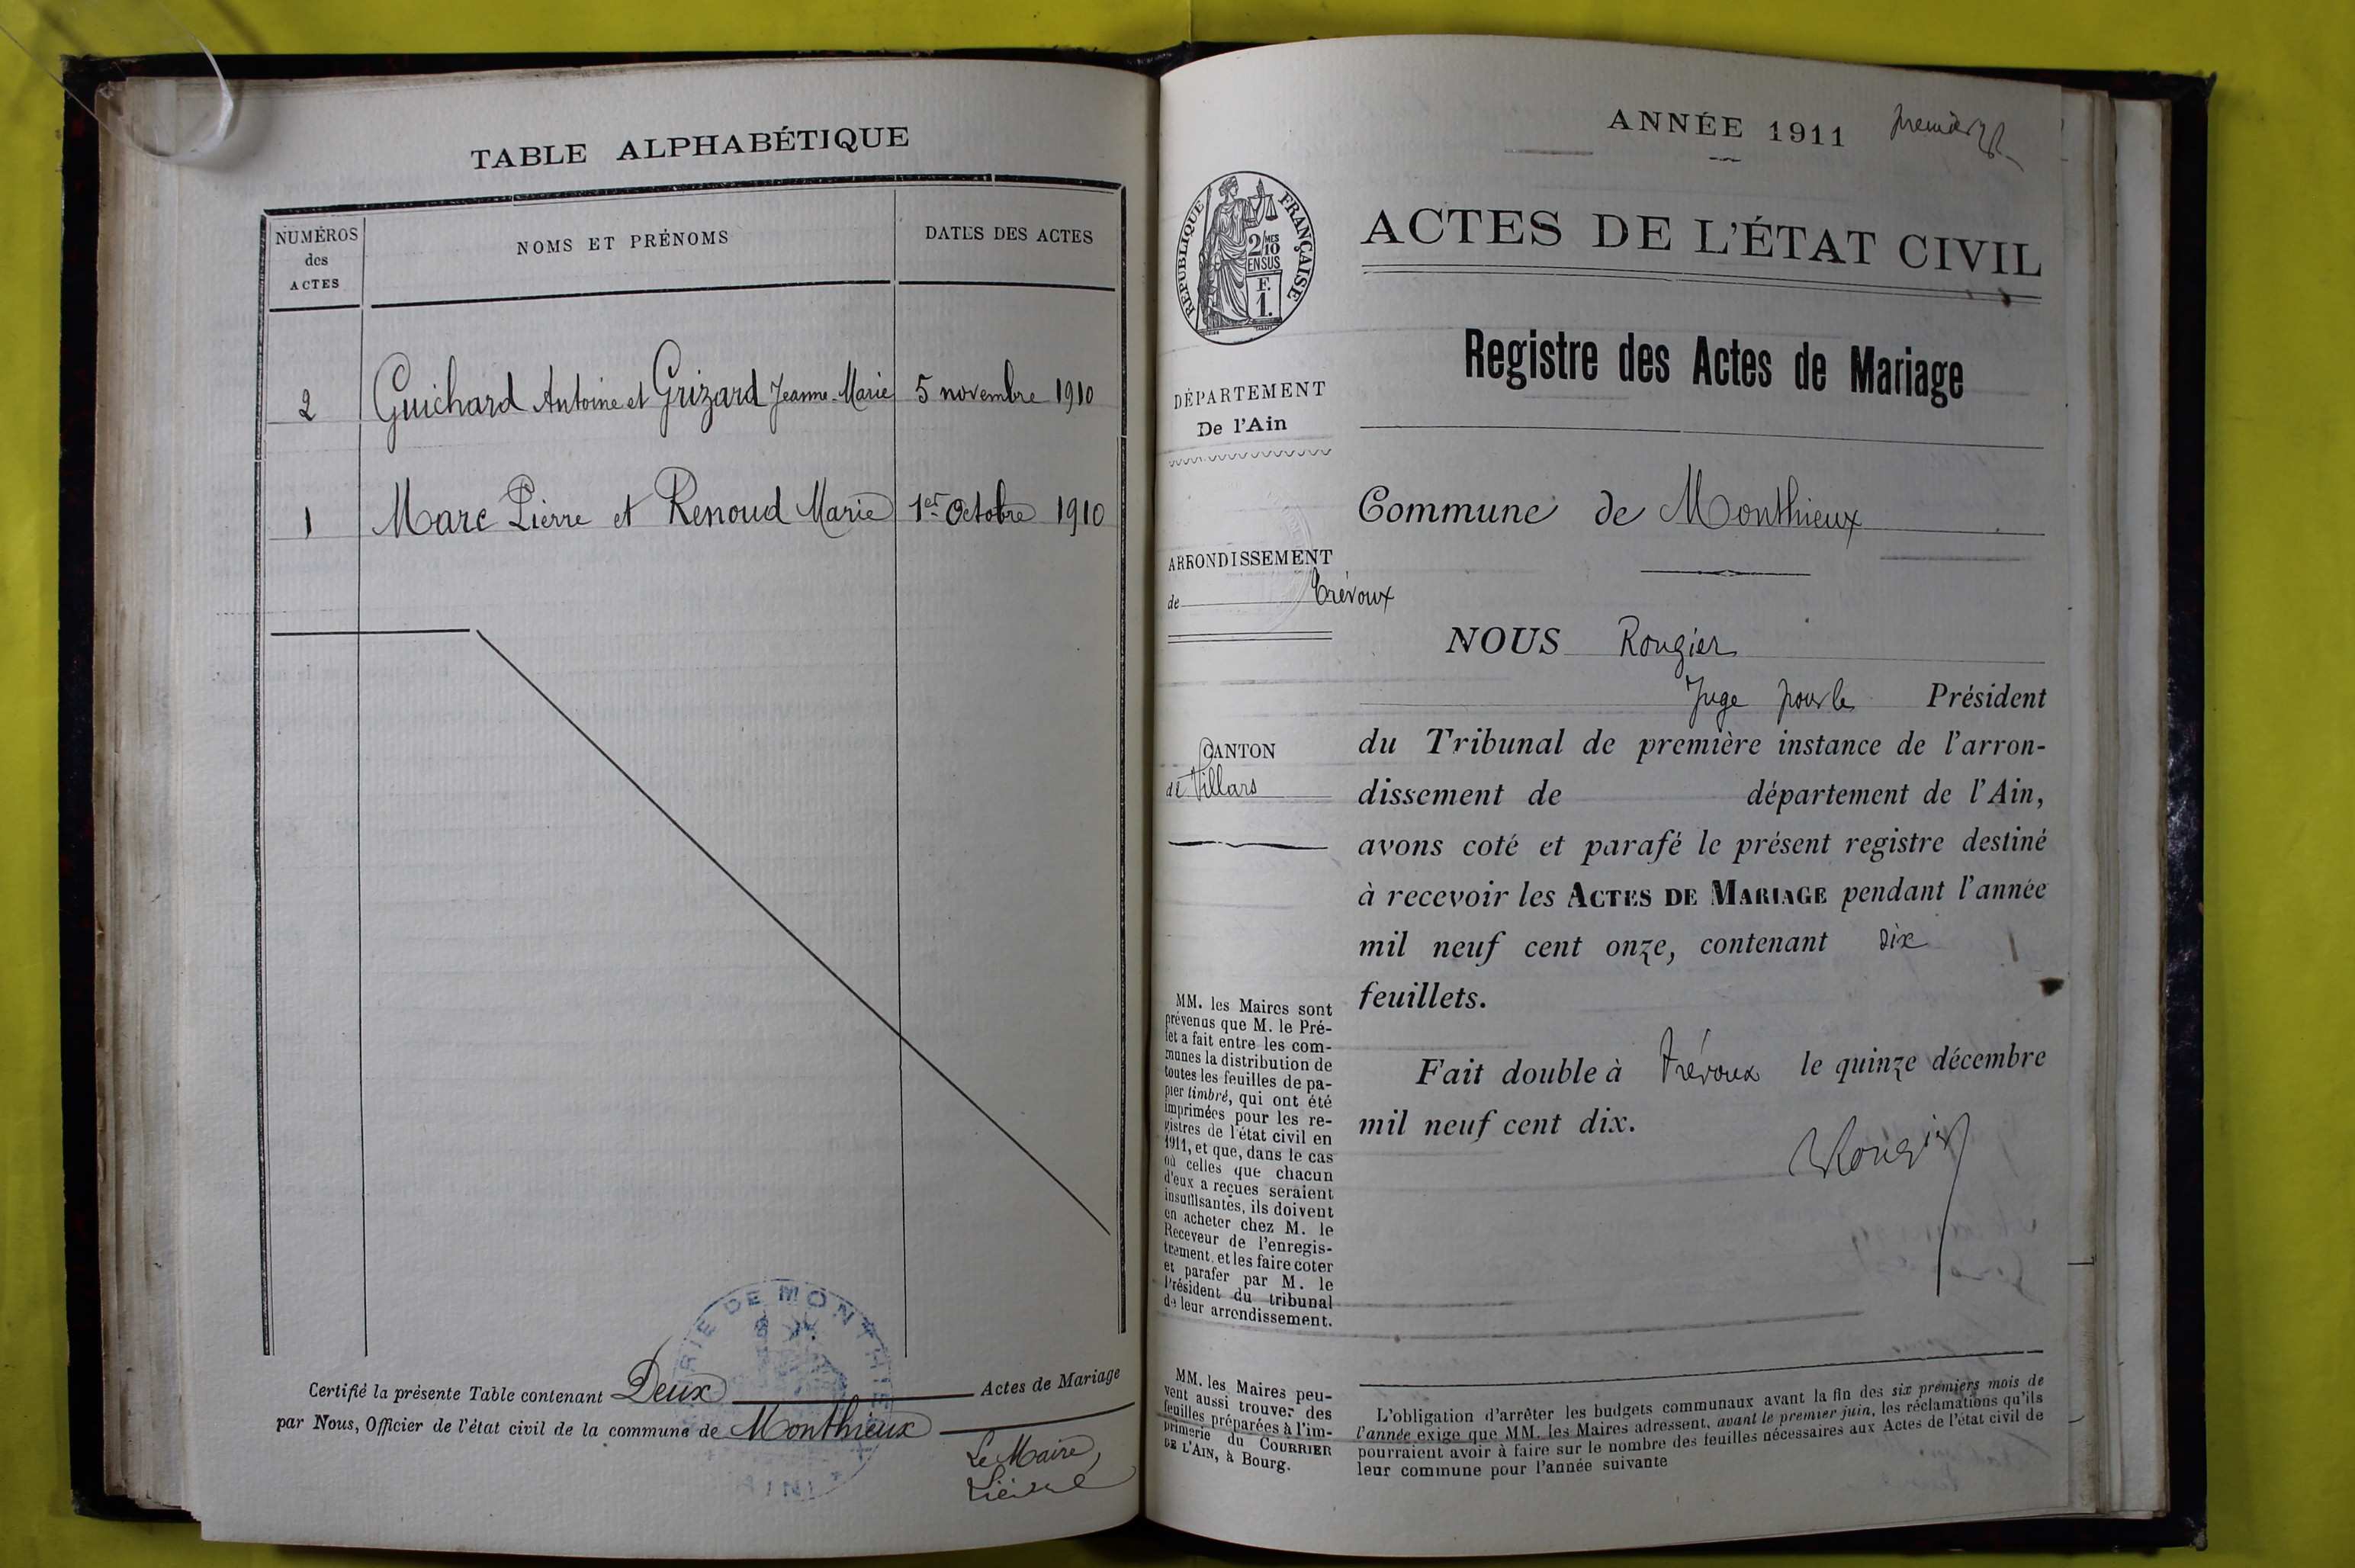 TABLE ALPHABÉTIQUE
NUMÉROS
des
ACTES
NOMS ET PRÉNOMS
DATES DES ACTES
2 Guichard Antoine et Grizard Jeanne-Marie 5 novembre 1910
1 Marc Pierre et Renoud Marie 1er Octobre 1910
MAIRIE DE MONTHIEUX
AIN
Certifié la présente Table contenant Deux Actes de Mariage
par Nous, Officier de l'état civil de la commune de Monthieux
Le Maire,
ANNÉE 1911 premier
RÉPUBLIQUE FRANÇAISE
2/MES
10
EN SUS
F.
1.
DÉPARTEMENT
De l'Ain
ARRONDISSEMENT
de Trévoux
CANTON
de Villars
MM. les Maires sont
prévenus que M. le Pré-
fet a fait entre les com-
munes la distribution de
toutes les feuilles de pa-
pier timbré, qui ont été
imprimées pour les re-
gistres de l'état civil en
1911, et que, dans le cas
où celles que chacun
d'eux a reçues seraient
insuffisantes, ils doivent
en acheter chez M. le
Receveur de l'enregis-
trement, et les faire coter
et parafer par M. le
Président du tribunal
de leur arrondissement.
MM. les Maires peu-
vent aussi trouver des
feuilles préparées à l'im-
primerie du COURRIER
DE L'AIN, à Bourg.
ACTES DE L'ÉTAT CIVIL
Registre des Actes de Mariage
Commune de Monthieux
NOUS Rougier
Juge pour le Président
du Tribunal de première instance de l'arron-
dissement de département de l'Ain,
avons coté et parafé le présent registre destiné
à recevoir les ACTES DE MARIAGE pendant l'année
mil neuf cent onze, contenant dix
feuillets.
Fait double à Trévoux le quinze décembre
mil neuf cent dix.
Rougier
L'obligation d'arrêter les budgets communaux avant la fin des six premiers mois de
l'année exige que MM. les Maires adressent, avant le premier juin, les réclamations qu'ils
pourraient avoir à faire sur le nombre des feuilles nécessaires aux Actes de l'état civil de
leur commune pour l'année suivante